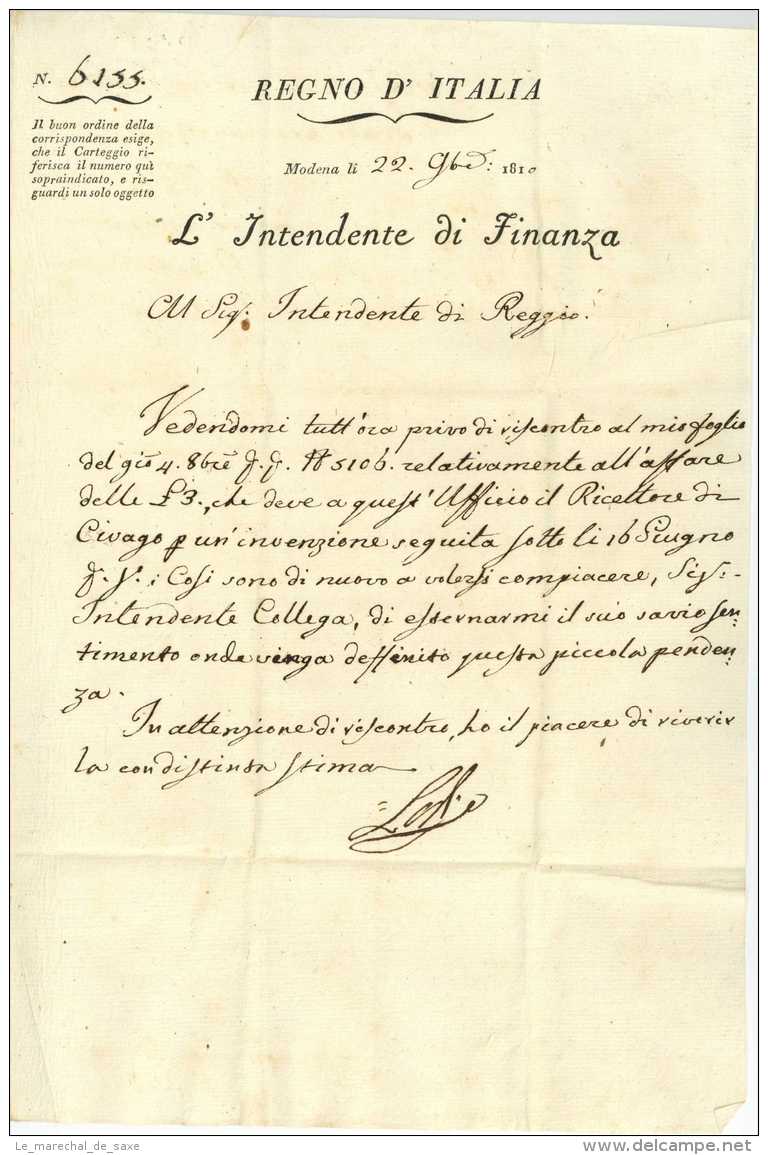 N. 6155.
REGNO D' ITALIA
Il buon ordine della
corrispondenza esige,
che il Carteggio ri-
ferisca il numero quì
sopraindicato, e ris-
guardi un solo oggetto
Modena li 22. 9bre: 1810
L' Intendente di Finanza
Al Sigr. Intendente di Reggio.
Vedendomi tutt'ora privo di riscontro al mio foglio
del gio 4. 8bre p. p. N 5106. relativamente all'affare
delle £3., che deve a quest'Ufficio il Ricettore di
Civago p un'invenzione seguita sotto li 16 Giugno
p. p.: Così sono di nuovo a volersi compiacere, Sigr.
Intendente Collega, di esternarmi il suo savio sen-
timento onde venga deffinito questa piccola penden-
za.
In attenzione di riscontro, ho il piacere di riverir
la con distinta stima
Le_marechal_de_saxe
www.delcampe.net